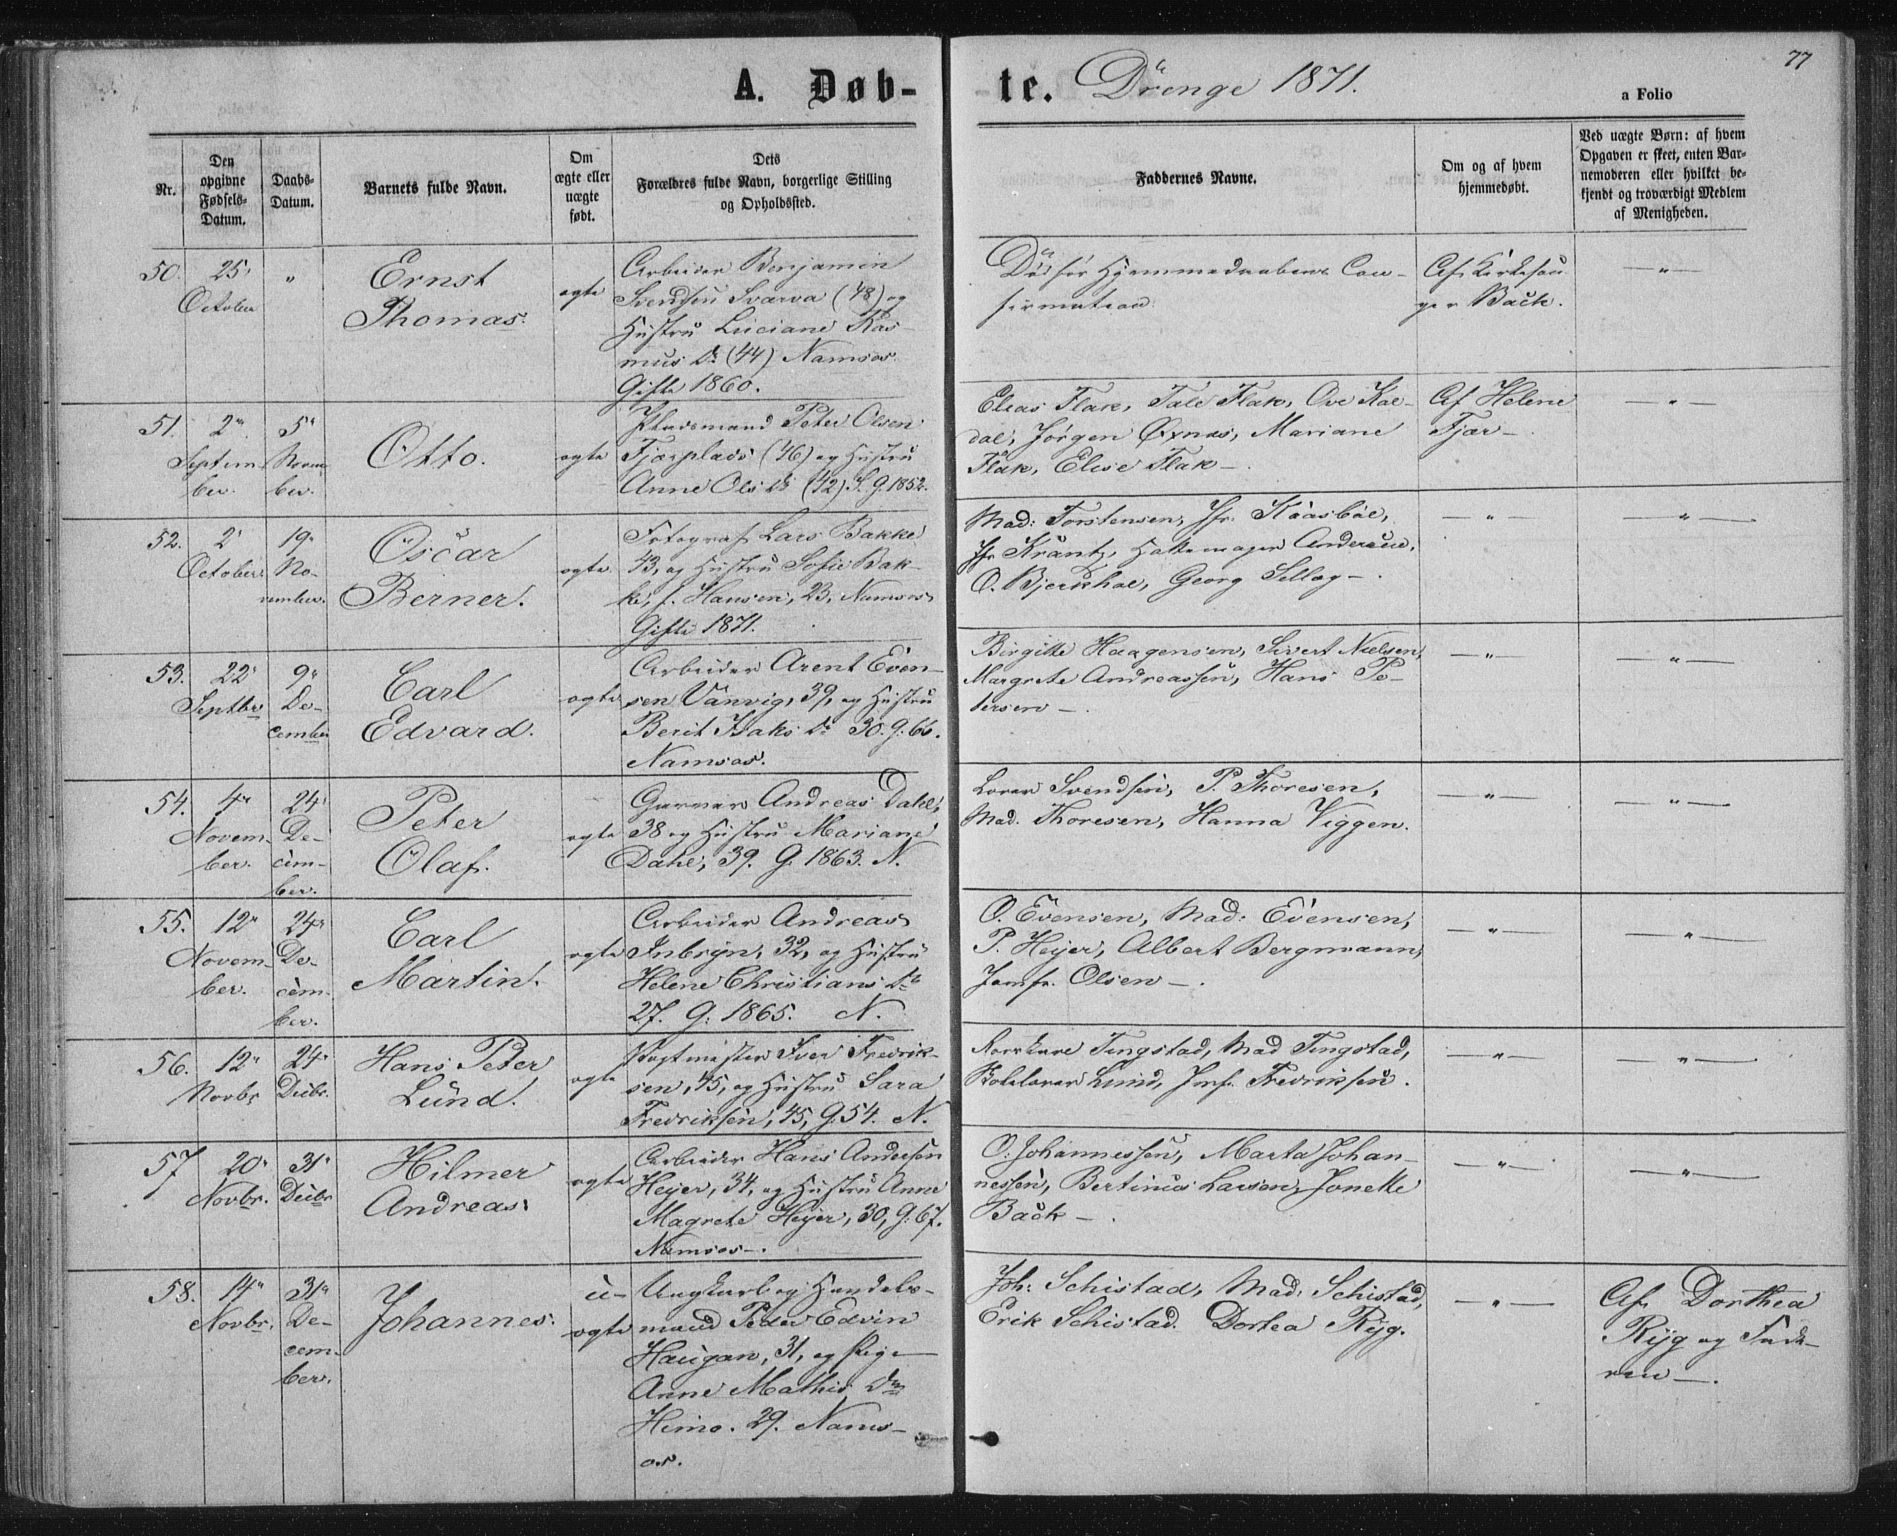 77
A. Døb-
te. Drenge 1871.
a Folio
Nr.
Den
opgivne
Fødsels-
Datum.
Daabs-
Datum.
Barnets fulde Navn.
Om
ægte eller
uægte
født.
Dets
Forældres fulde Navn, borgerlige Stilling
og Opholdssted.
Faddernes Navne.
Om og af hvem
hjemmedøbt.
Ved uægte Børn: af hvem
Opgaven er skeet, enten Bar-
nemoderen eller hvilket be-
kjendt og troværdigt Medlem
af Menigheden.
50.
25'
October
"
Ernst
Thomas.
ægte
Arbeider Benjamin
Svendsen Svarva (48) og
Hustru Luciane Ras-
mus D. (44) Namsos.
Gifte 1860.
Død før Hjemmedaabens Con-
firmation
Af Kirkesan-
ger Back.
— " —
51.
2"
Septem-
ber.
5"
Novem-
ber.
Otto.
ægte
Pladsmand Peter Olsen
Fjærplads (46) og Hustru
Anne Ols D. (42). S. G. 1852.
Elias Flak, Tale Flak, Ove Kal-
dal, Jørgen Øxnæs, Mariane
Flak, Elise Flak —.
Af Helene
Fjær —
— " —
52.
2'
October
19"
No-
vember.
Oscar
Berner.
ægte
Fotograf Lars Bakke
43, og Hustru Sofie Bak-
ke, f. Hansen, 23, Namsos
Gifte 1871.
Mad: Torstensen, Jfr. Kaasbøe,
Jfr Krantz, Hattemager Andersen,
O. Bjerkhoe, Georg Sellæg —.
— " —
— " —
53.
22'
Septbr
9"
De-
cember
Carl
Edvard.
ægte
Arbeider Arent Even-
sen Vanvig, 39, og Hustru
Berit Isaks D. 30. G. 66.
Namsos.
Birgitte Haagensen, Sivert Nielsen,
Margrete Andreassen, Hans Pe-
tersen —.
— " —
— " —
54.
4"
Novem-
ber.
24'
De-
cem-
ber.
Peter
Olaf.
ægte
Garver Andreas Dahl,
38 og Hustru Mariane
Dahl, 39. G. 1863. N.
Lorer Svendsen, P. Thoresen,
Mad. Thoresen, Hanna Viggen.
— " —
— " —
55.
12"
Novem-
ber.
24"
De-
cem-
ber.
Carl
Martin.
ægte
Arbeider Andreas
Inbryn, 32, og Hustru
Helene Christians D.
27. G: 1865. N.
O. Evensen, Mad: Evensen,
P. Heyer, Albert Bergmann,
Jomfr. Olsen —.
— " —
— " —
56.
12"
Novbr
24"
Decbr.
Hans Peter
Lund.
ægte
Vagtmester Iver Fredrik-
sen, 45, og Hustru Sara
Fredriksen, 45, G. 54. N.
Tingstad, Mad Tingstad,
Lund, Jmfr. Fredriksen.
— " —
— " —
57
20"
Novbr.
31"
Decbr
Hilmer
Andreas
ægte
Arbeider Hans Andersen
Heyer, 34, og Hustru Anne
Magrete Heyer, 30, G. 67.
Namsos —.
O. Johannessen, Marta Johan-
nessen, Bertinus Larsen, Jonette
Back —.
— " —
— " —
58.
14"
Novbr.
31"
De-
cem-
ber.
Johannes.
u-
ægte
Ungkarl og Handels-
mand Peder Edvin
Haugan, 31, og Pige
Anne Mathis Dtr
Himo. 29. Nams-
os.
Joh: Schistad, Mad: Schistad,
Erik Schistad. Dortea Ryg.
— " —
Af Dorthea
Ryg og Fade-
ren —.